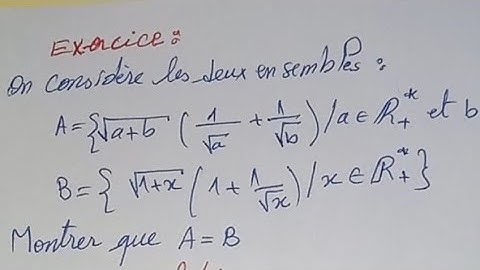 Exercice :
On considère les deux ensembles :
A = { √(a+b) ( 1/√a + 1/√b ) / a ∈ ℝ₊* et b
B = { √(1+x) ( 1 + 1/√x ) / x ∈ ℝ₊* }
Montrer que A = B